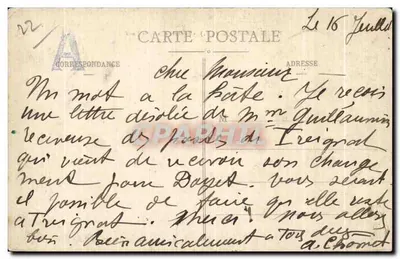 22/
Le 16 Juillet
CARTE POSTALE
A
CORRESPONDANCE
ADRESSE
Cher Monsieur
Un mot à la hâte. Je reçois
une lettre désolée de Mme Guillaumin
receveuse des postes de Treignat
qui vient de recevoir son change
ment pour. Vous serait
il possible de faire qu'elle reste
à Treignat. Merci. nous allons
bien. Bien amicalement à tous deux